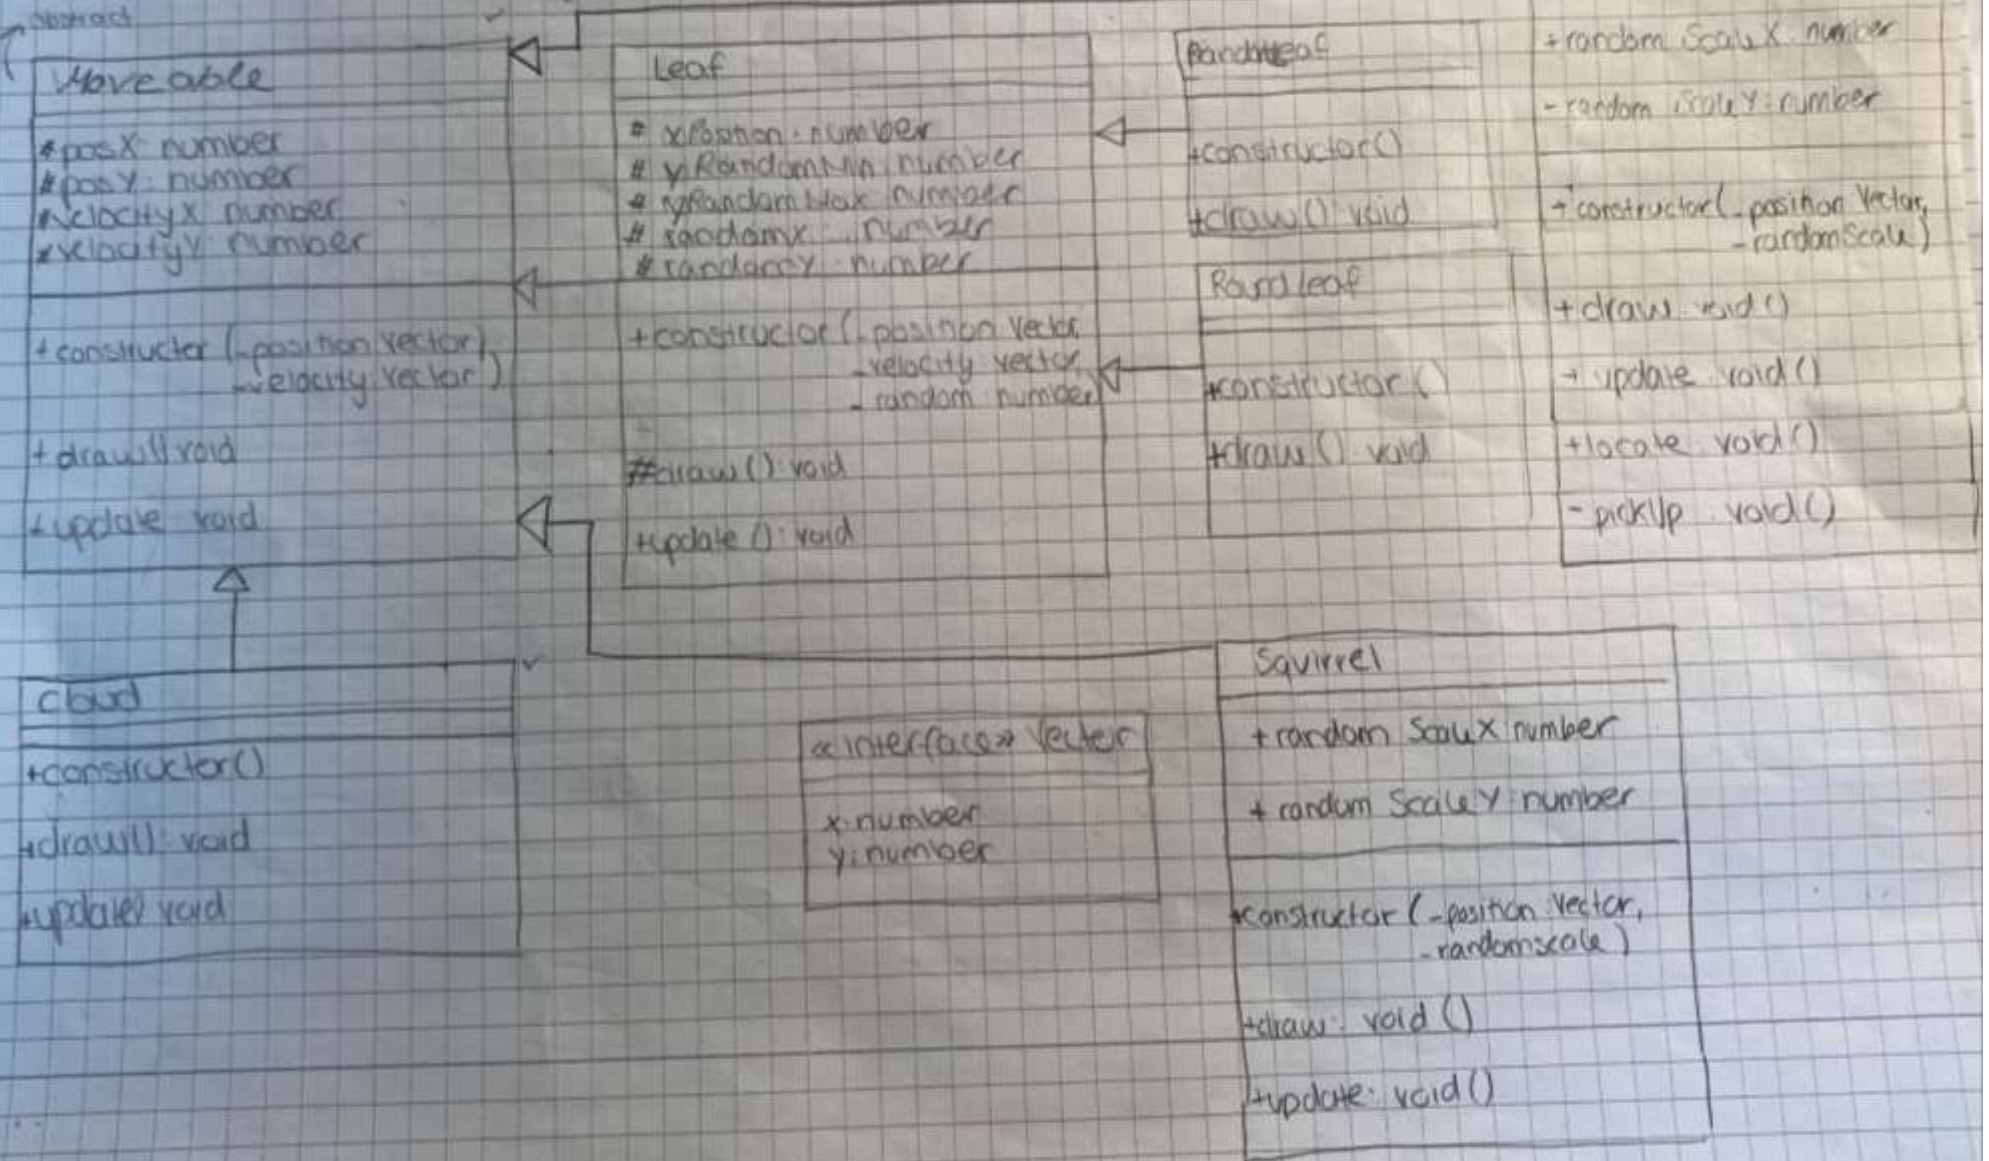 abstract
Moveable
#posX number
#posY: number
velocityX number
#velocityY: number
+constructor (-position vector),
-velocity vector)
+draw() void
+update void
Leaf
# xPosition: number
# yRandomMin number
# yRandomMax number
# randomx: number
# randomY number
+constructor (-position vector
-velocity vector
- random number
#draw(): void
+update (): void
+constructor()
+draw(): void
Rand Leaf
+constructor()
+draw() void
+random ScaleX number
-random ScaleY: number
+constructor(-position Vector,
-randomScale)
+draw void()
+ update void()
+locate void()
- pickUp: void()
cloud
+constructor()
+draw(): void
+update() void
<<interface>> Vector
x:number
y:number
Squirrel
+random ScaleX number
+ random ScaleY number
+constructor (-position Vector,
-randomscale)
+draw: void ()
+update: void()